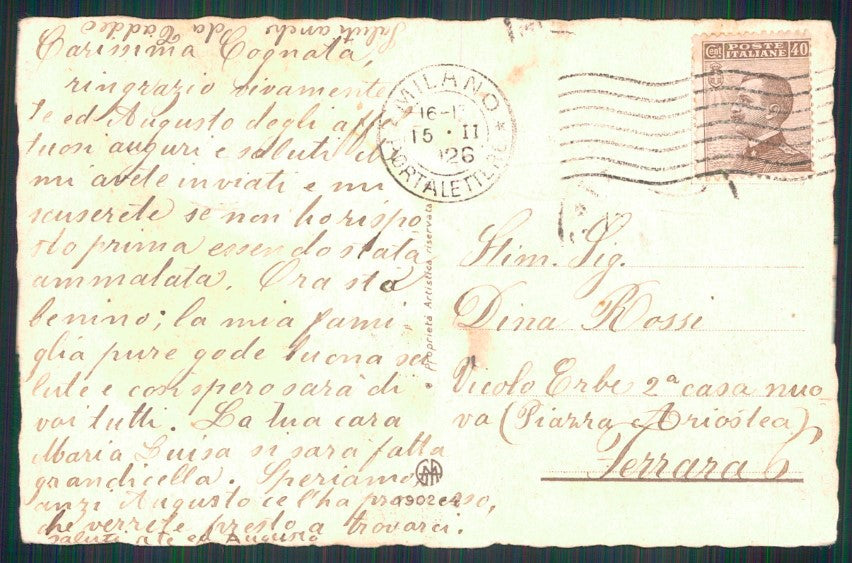 Saluti anche da Taddeo
Carissima Cognata,
ringrazio vivamente
te ed Augusto degli affe
tuosi auguri e saluti che
mi avete inviati e mi
scuserete se non ho rispo
sto prima essendo stata
ammalata. Ora sto
benino; la mia fami
glia pure gode buona sa
lute e con spero sarà di
voi tutti. La tua cara
Maria Luisa si sarà fatta
grandicella. Speriamo
anzi Augusto ce l'ha promesso,
che verrete presto a trovarci.
saluti a te ed Augusto
MILANO
16-17
15 · II
926
PORTALETTERE
Cent POSTE ITALIANE 40
Proprietà Artistica riservata
1902-4
Stim. Sig.
Dina Rossi
Vicolo Erbe 2ª casa nuo-
va (Piazza Ariostea)
Ferrara